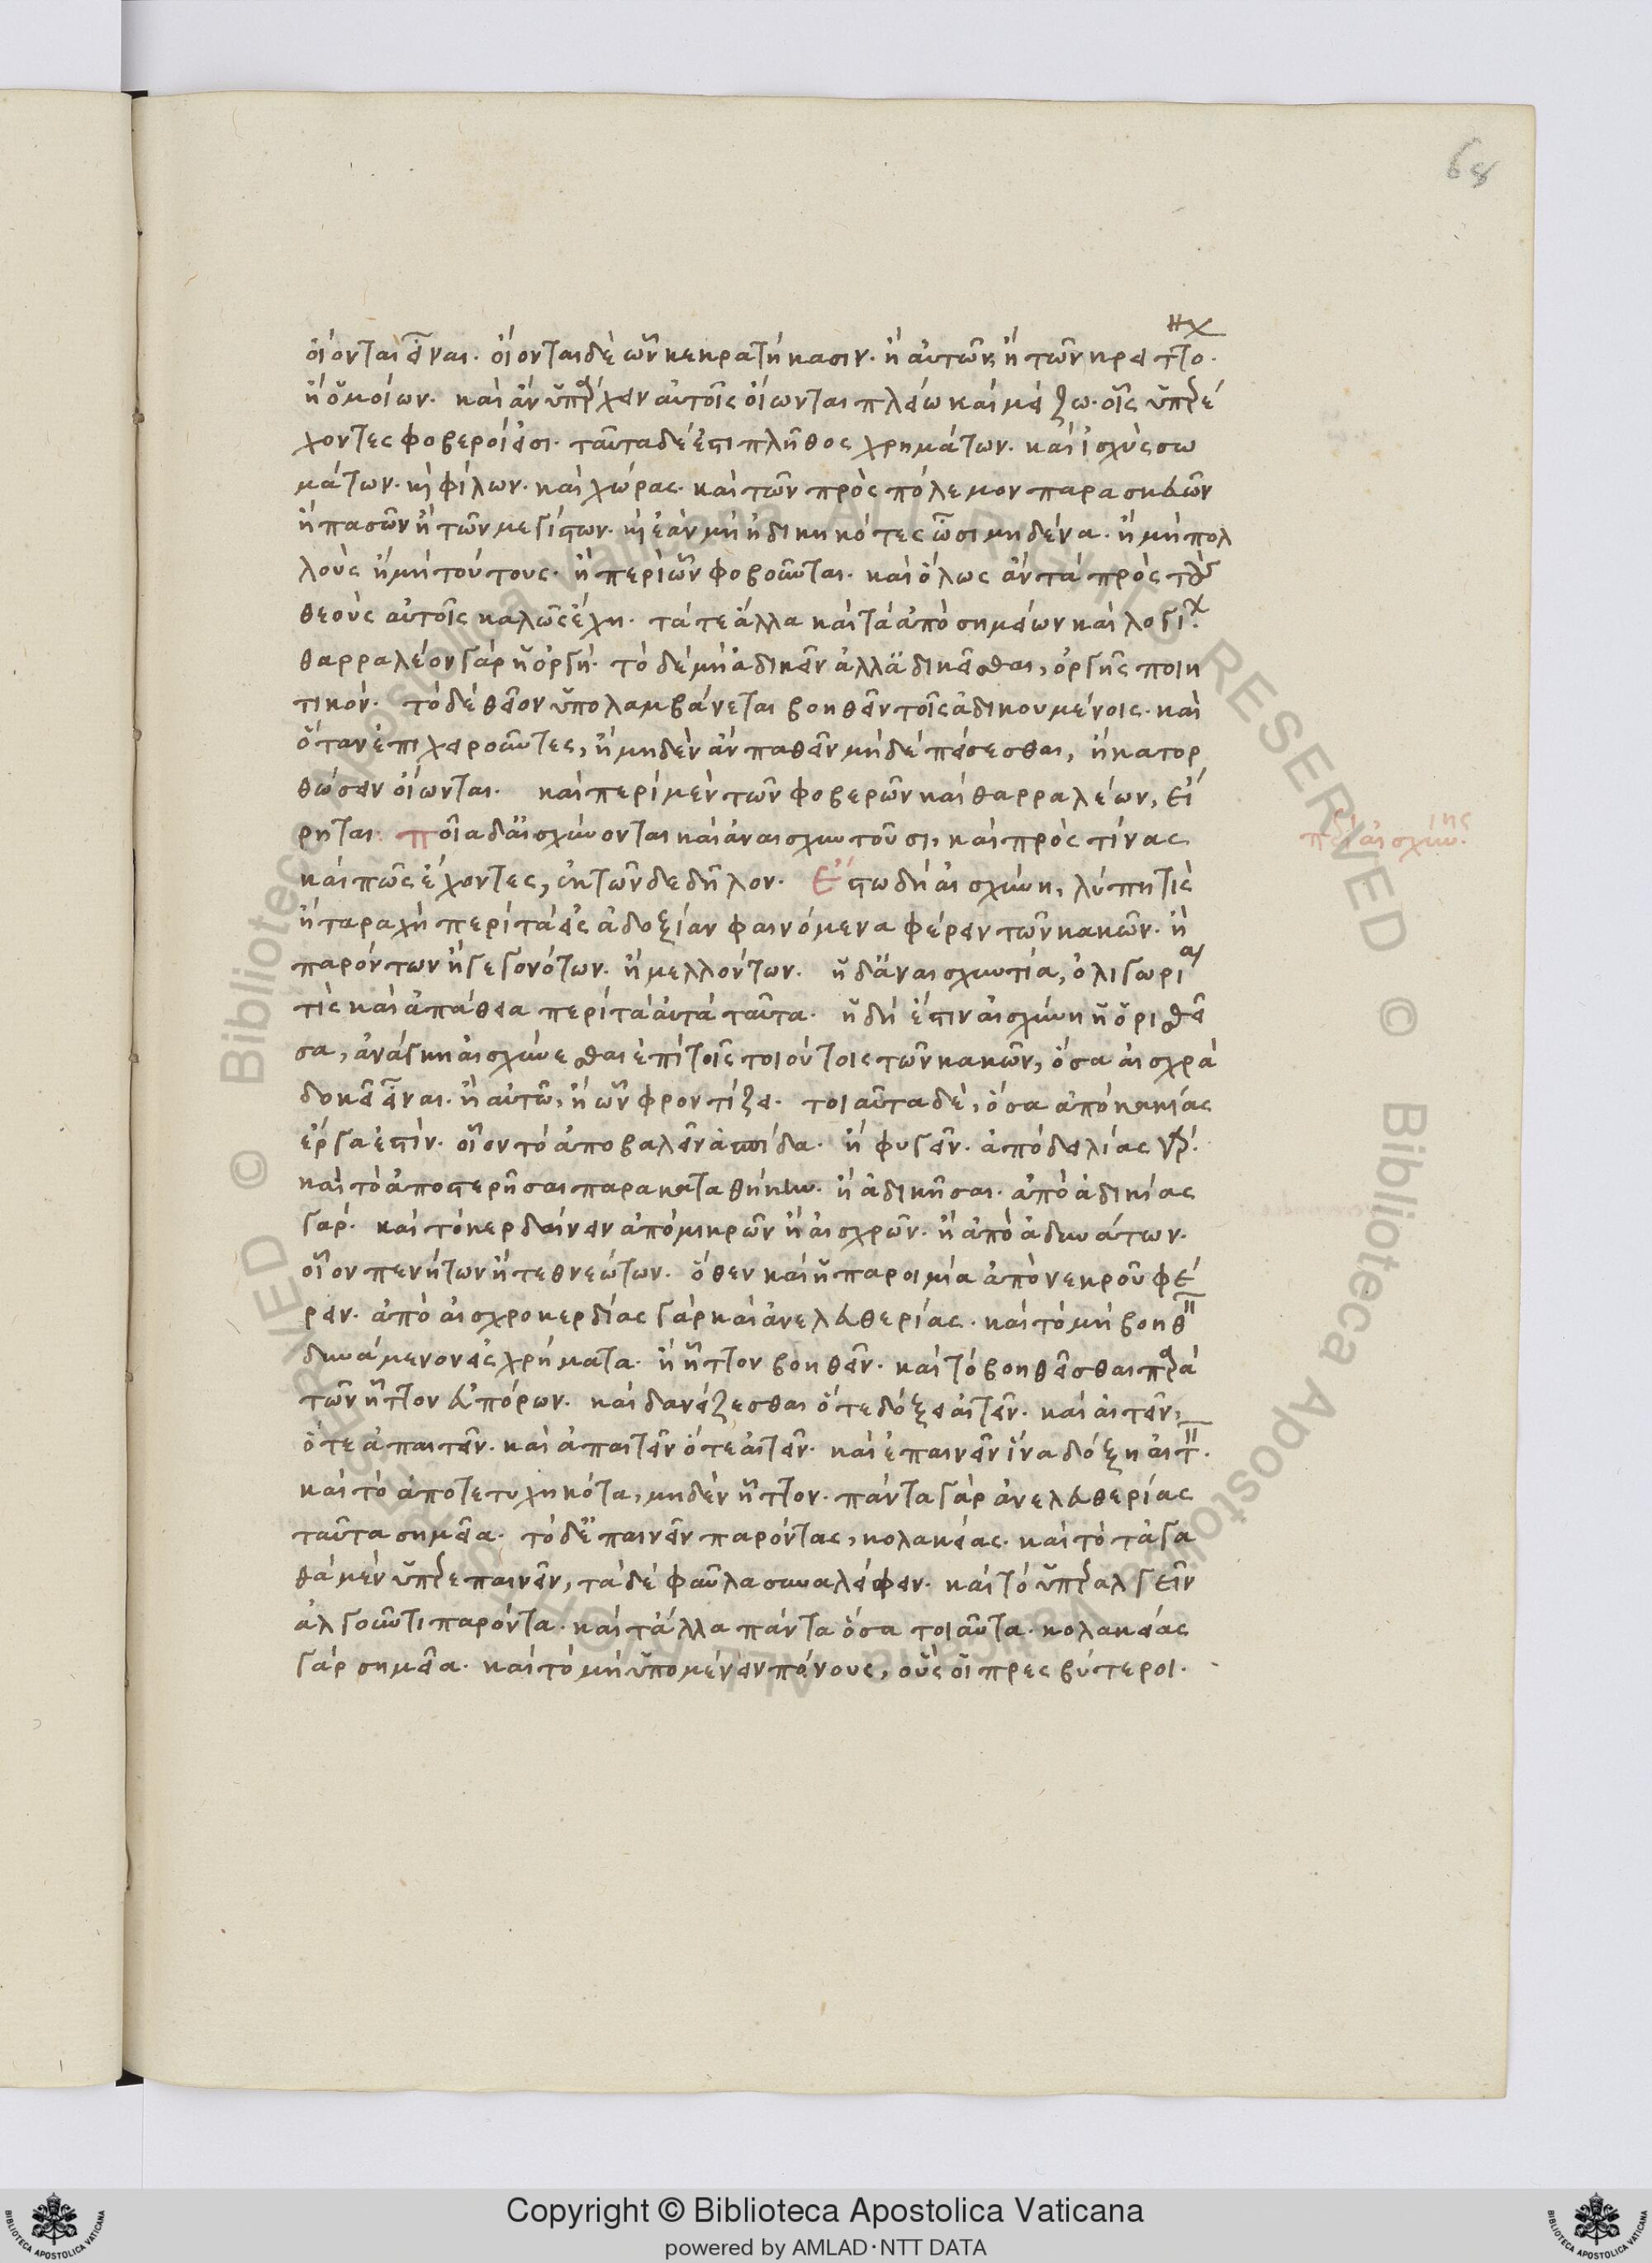 68
οἴονται εἶναι. οἴονται δὲ ὧν κεκρατήκασιν. ἢ αὐτῶν, ἢ τῶν κρειττό.
ἢ ὁμοίων. καὶ ἂν ὑπάρχειν αὐτοῖς οἴωνται πλείω καὶ μείζω. οἷς ὑπερέ
χοντες φοβεροί εἰσι. ταῦτα δέ ἐστι πλῆθος χρημάτων. καὶ ἰσχὺς σω
μάτων. καὶ φίλων. καὶ χώρας. καὶ τῶν πρὸς πόλεμον παρασκευῶν
ἢ πασῶν ἢ τῶν μεγίστων. καὶ ἐὰν μὴ ἠδικηκότες ὦσι μηδένα. ἢ μὴ πολ
λοὺς ἢ μὴ τούτους. ἢ περὶ ὧν φοβοῦνται. καὶ ὅλως ἂν τὰ πρὸς τοὺς
θεοὺς αὐτοῖς καλῶς ἔχη. τά τε ἄλλα καὶ τὰ ἀπὸ σημείων καὶ λογί.
θαρραλέον γὰρ ἡ ὀργή. τὸ δὲ μὴ ἀδικεῖν ἀλλ' ἀδικεῖσθαι, ὀργῆς ποιη
τικόν. τὸ δὲ θεῖον ὑπολαμβάνεται βοηθεῖν τοῖς ἀδικουμένοις. καὶ
ὅταν ἐπιχειροῦντες, ἢ μηδὲν ἂν παθεῖν μηδὲ πείσεσθαι, ἢ κατορ
θώσειν οἴωνται. καὶ περὶ μὲν τῶν φοβερῶν καὶ θαρραλέων, εἴ
ρηται. ποῖα δ' αἰσχύνονται καὶ ἀναισχυντοῦσι, καὶ πρὸς τίνας
περὶ αἰσχύνης.
καὶ πῶς ἔχοντες, ἐκ τῶνδε δῆλον. Ἔστω δὴ αἰσχύνη, λύπη τὶς
ἢ ταραχὴ περὶ τὰ εἰς ἀδοξίαν φαινόμενα φέρειν τῶν κακῶν. ἢ
παρόντων ἢ γεγονότων. ἢ μελλόντων. ἡ δ' ἀναισχυντία, ὀλιγωρία
τὶς καὶ ἀπάθεια περὶ τὰ αὐτὰ ταῦτα. ἡ δή ἐστιν αἰσχύνη ἡ ὁρισθεῖ
σα, ἀνάγκη αἰσχύνεσθαι ἐπὶ τοῖς τοιούτοις τῶν κακῶν, ὅσα αἰσχρὰ
δοκεῖ εἶναι. ἢ αὐτῶ, ἢ ὧν φροντίζει. τοιαῦτα δὲ, ὅσα ἀπὸ κακίας
ἔργα ἐστίν. οἷον τὸ ἀποβαλεῖν ἀσπίδα. ἢ φυγεῖν. ἀπὸ δειλίας γάρ.
καὶ τὸ ἀποστερῆσαι παρακαταθήκην. ἢ ἀδικῆσαι. ἀπὸ ἀδικίας
γάρ. καὶ τὸ κερδαίνειν ἀπὸ μικρῶν ἢ αἰσχρῶν. ἢ ἀπὸ ἀδυνάτων.
οἷον πενήτων ἢ τεθνεώτων. ὅθεν καὶ ἡ παροιμία ἀπὸ νεκροῦ φέ
ρειν. ἀπὸ αἰσχροκερδίας γὰρ καὶ ἀνελευθερίας. καὶ τὸ μὴ βοηθεῖν
δυνάμενον εἰς χρήματα. ἢ ἧττον βοηθεῖν. καὶ τὸ βοηθεῖσθαι παρὰ
τῶν ἧττον εὐπόρων. καὶ δανείζεσθαι ὅτε δόξει αἰτεῖν. καὶ αἰτεῖν,
ὅτε ἀπαιτεῖν. καὶ ἀπαιτεῖν ὅτε αἰτεῖν. καὶ ἐπαινεῖν ἵνα δόξη αἰτεῖν.
καὶ τὸ ἀποτετυχηκότα, μηδὲν ἧττον. πάντα γὰρ ἀνελευθερίας
ταῦτα σημεῖα. τὸ δ' ἐπαινεῖν παρόντας, κολακείας. καὶ τὸ τἀγα
θὰ μὲν ὑπερεπαινεῖν, τὰ δὲ φαῦλα συναλείφειν. καὶ τὸ ὑπεραλγεῖν
ἀλγοῦντι παρόντα. καὶ τἆλλα πάντα ὅσα τοιαῦτα. κολακείας
γὰρ σημεῖα. καὶ τὸ μὴ ὑπομένειν πόνους, οὓς οἱ πρεσβύτεροι.
Copyright © Biblioteca Apostolica Vaticana
powered by AMLAD·NTT DATA